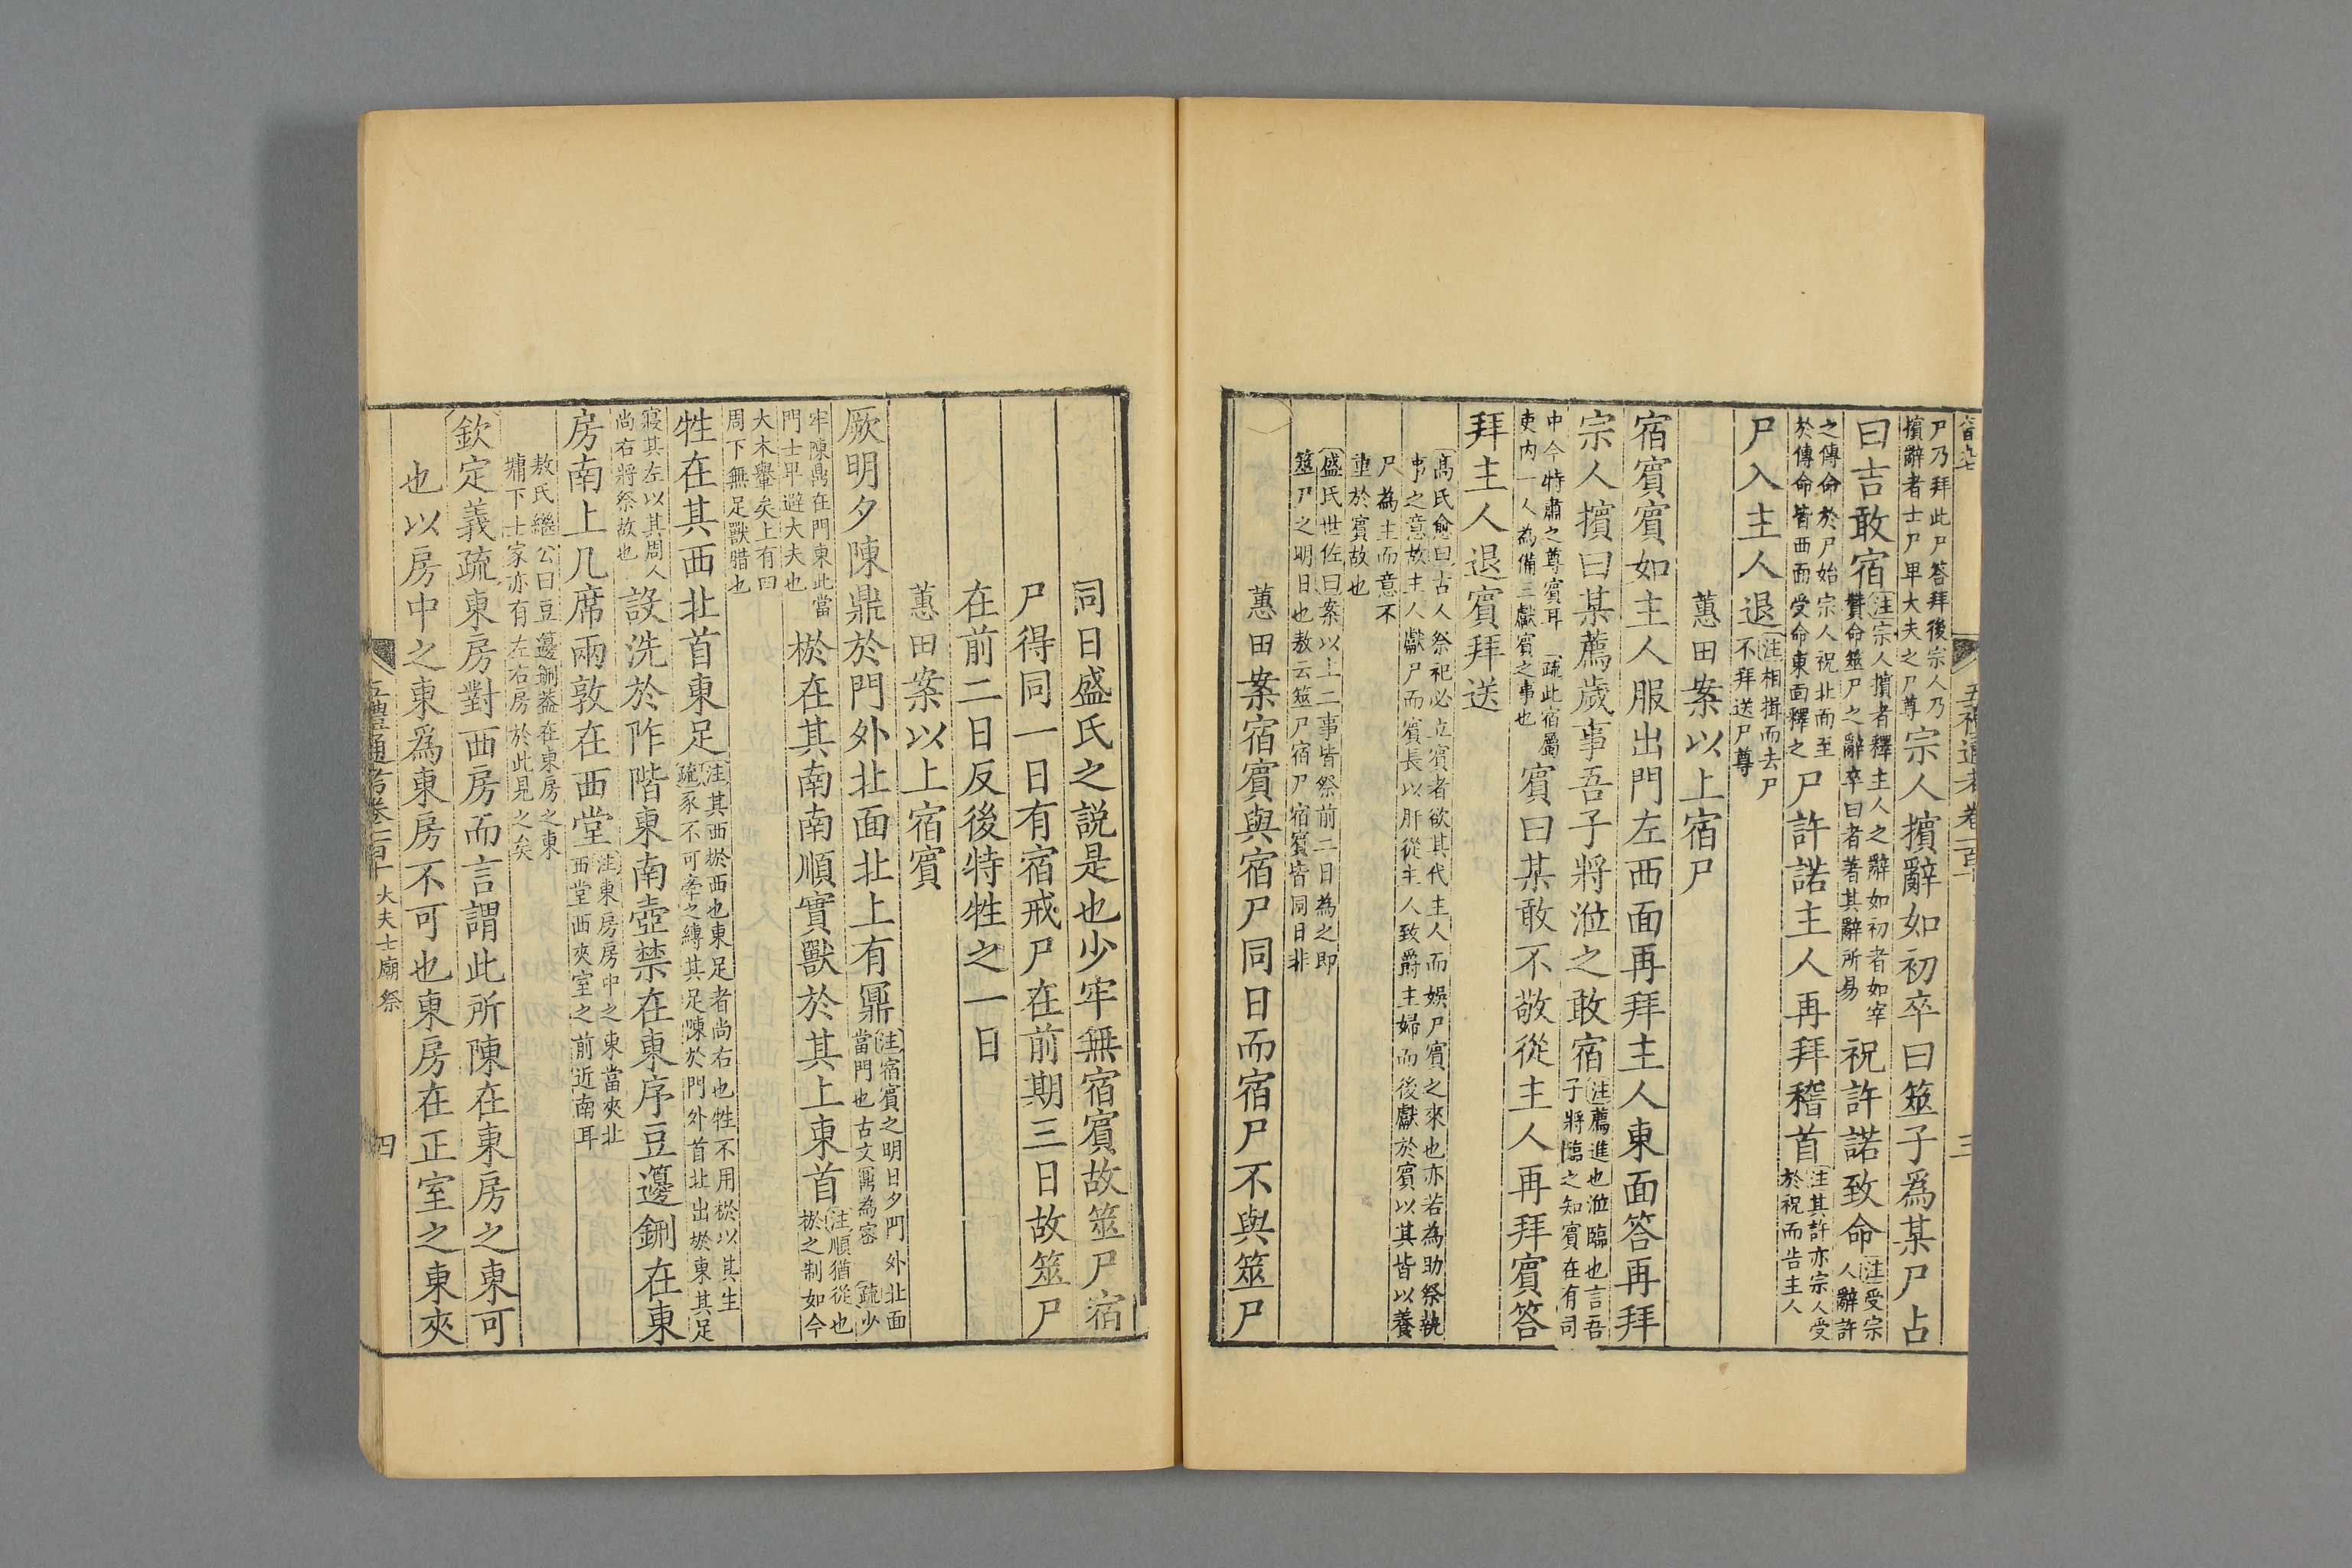 五禮通考卷一百十
三
尸乃拜此尸答拜後宗人乃
擯辭者士尸卑大夫之尸尊
宗人擯辭如初卒曰筮子爲某尸占
曰吉敢宿
注宗人擯者釋主人之辭如初者如宰
贊命筮尸之辭卒曰者著其辭所易
祝許諾致命
注受宗
人辭許
之傳命於尸始宗人祝北面至
於傳命皆西面受命東面釋之
尸許諾主人再拜稽首
注其許亦宗人受
於祝而告主人
尸入主人退
注相揖而去尸
不拜送尸尊
蕙田案以上宿尸
宿賓賓如主人服出門左西面再拜主人東面答再拜
宗人擯曰某薦歲事吾子將涖之敢宿
注薦進也涖臨也言吾
子將臨之知賓在有司
中今特肅之尊賓耳
疏此宿屬
吏内一人為備三獻賓之事也
賓曰某敢不敬從主人再拜賓答
拜主人退賓拜送
高氏愈曰古人祭祀必立賓者欲其代主人而娛尸賓之來也亦若為助祭執
事之意故主人獻尸而賓長以肝從主人致爵主婦而後獻於賓以其皆以養
尸為主而意不
重於賓故也
盛氏世佐曰案以上二事皆祭前二日為之即
筮尸之明日也敖云筮尸宿尸宿賓皆同日非
蕙田案宿賓與宿尸同日而宿尸不與筮尸
同日盛氏之説是也少牢無宿賓故筮尸宿
尸得同一日有宿戒尸在前期三日故筮尸
在前二日反後特牲之一日
蕙田案以上宿賓
厥明夕陳鼎於門外北面北上有鼏
注宿賓之明日夕門外北面
當門也古文鼏為密
疏少
牢陳鼎在門東此當
門士卑避大夫也
棜在其南南順實獸於其上東首
注順猶從也
棜之制如今
大木轝矣上有四
周下無足獸腊也
牲在其西北首東足
注其西棜西也東足者尚右也牲不用棜以其生
疏豕不可牽之縛其足陳於門外首北出棜東其足
寢其左以其周人
尚右將祭故也
設洗於阼階東南壺禁在東序豆籩鉶在東
房南上几席兩敦在西堂
注東房房中之東當夾北
西堂西夾室之前近南耳
敖氏繼公曰豆籩鉶葢在東房之東
墉下士家亦有左右房於此見之矣
欽定義疏東房對西房而言謂此所陳在東房之東可
也以房中之東爲東房不可也東房在正室之東夾
五禮通考卷一百十
大夫士廟祭
四